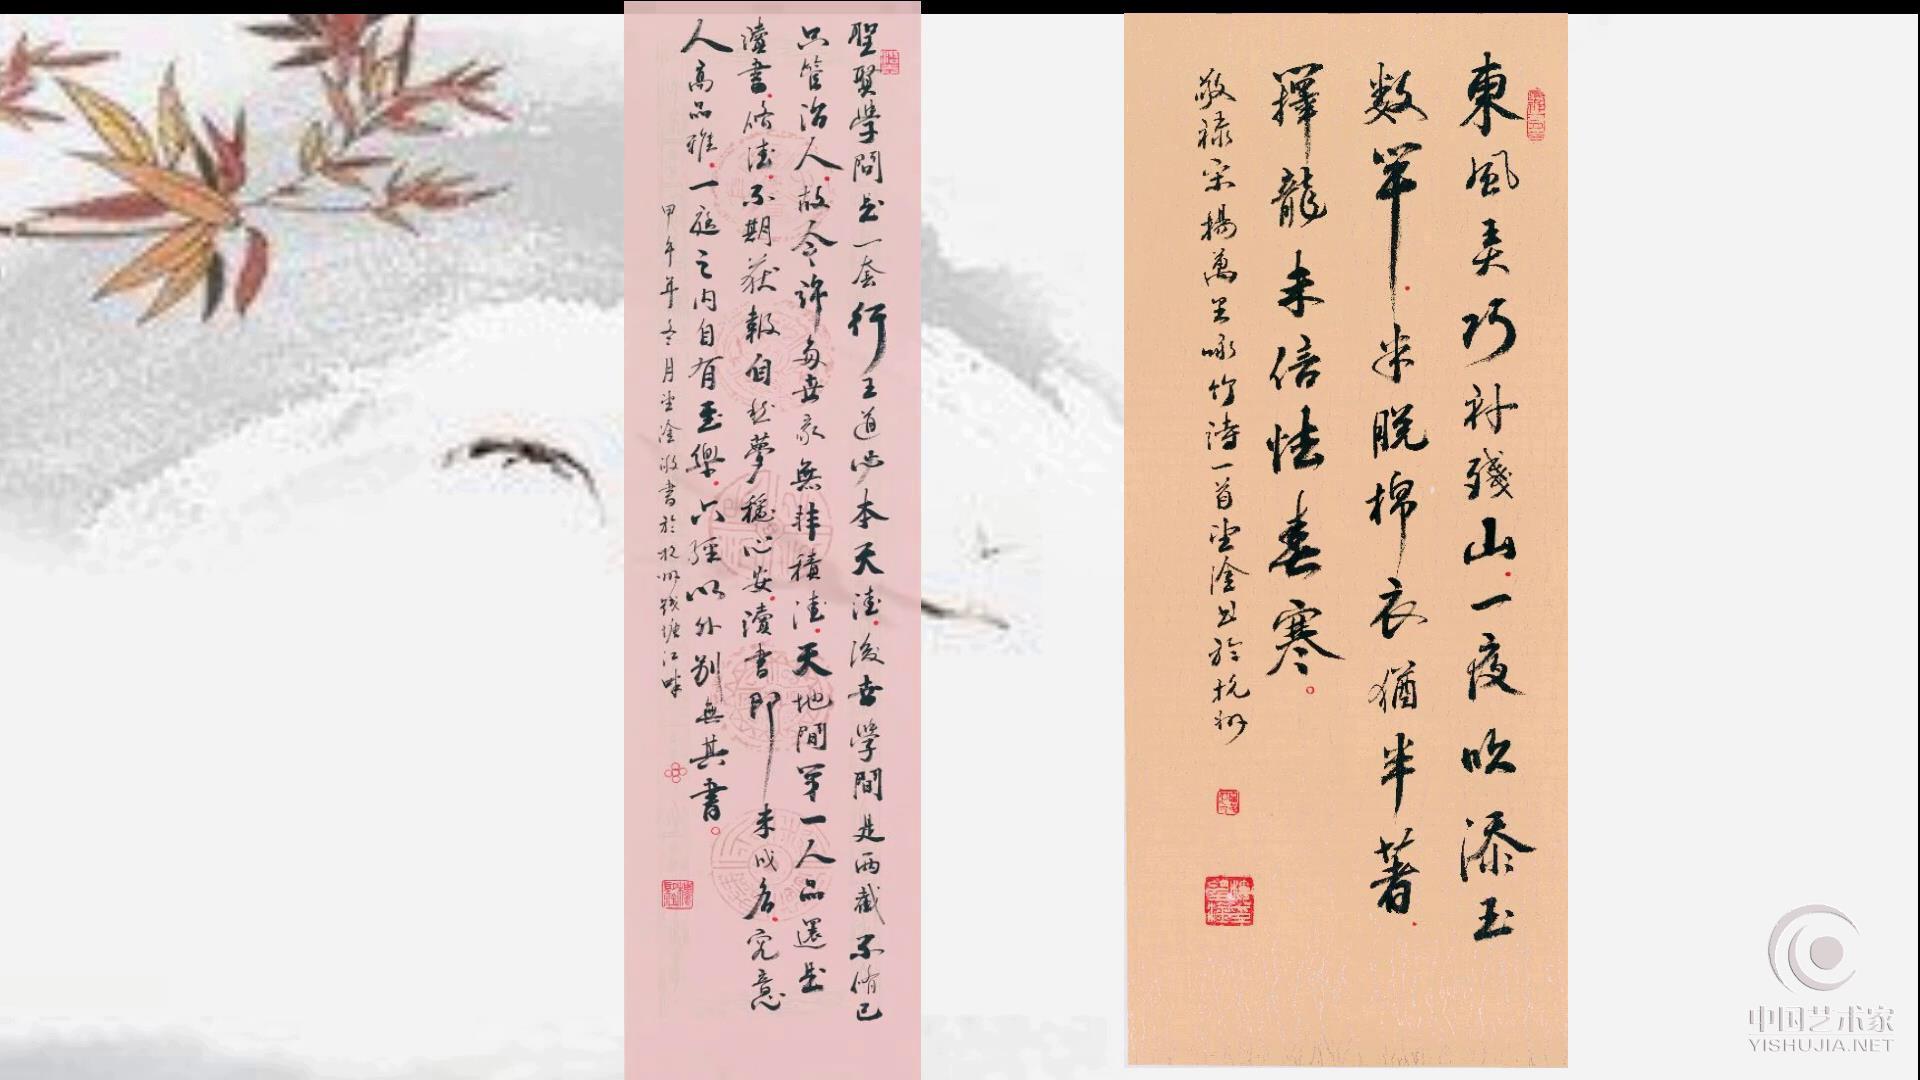 聖賢學問是一套行王道必本天德後世學問是兩截不脩己
只管治人故今許多世家無非積德天地間第一人品還是
讀書脩德不期获報自然夢穩心安讀書即未成名究意
人高品雅一庭之内自有至樂六經以外别無其書
甲午年冬月望淦敬書於杭州錢塘江畔
東風弄巧補殘山一夜吹添玉
数竿半脱棉衣猶半著
籜龍未信怯春寒
敬禄宋楊萬里咏竹诗一首望淦书於杭州
中国艺术家
YISHUJIA.NET